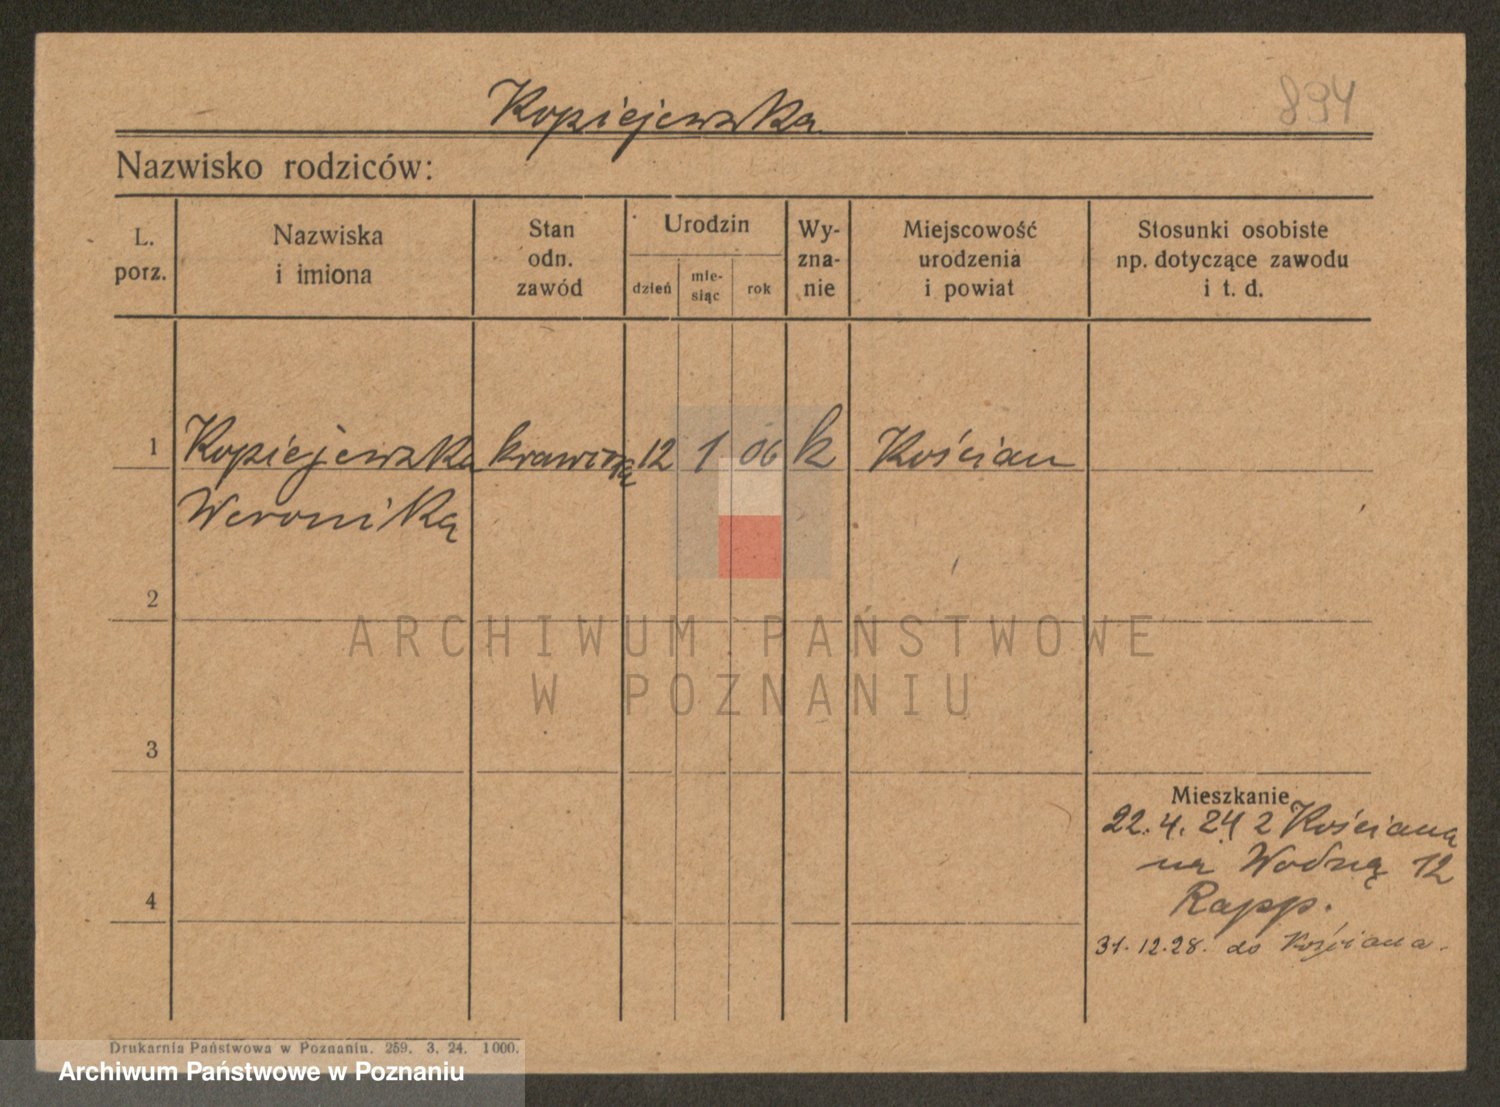 Kopiejewska
894
Nazwisko rodziców:
L. porz.
Nazwiska i imiona
Stan odn. zawód
Urodzin
dzień
mie-siąc
rok
Wy-zna-nie
Miejscowość urodzenia i powiat
Stosunki osobiste np. dotyczące zawodu i t. d.
1 Kopiejewska krawczka 12 1 06 k Kościan
Weronika
2
ARCHIWUM PAŃSTWOWE
W POZNANIU
3
Mieszkanie
22.4.24 z Kościana
na Wodną 12
4
Rapp.
31.12.28. do Kościana.
Drukarnia Państwowa w Poznaniu. 259. 3. 24. 1000.
Archiwum Państwowe w Poznaniu